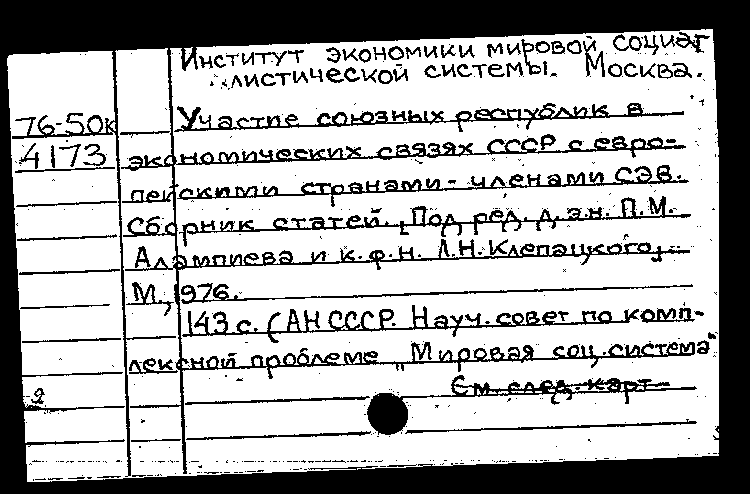 Институт экономики мировой социа-
листической системы. Москва.
76-50к
Участие союзных республик в
4173
экономических связях СССР с евро-
пейскими странами - членами СЭВ.
Сборник статей. [Под ред. д.э.н. П.М.
Алампиева и к.ф.н. Л.Н. Клепацкого].-
М., 1976.
143 с. (АН СССР. Науч. совет по комп-
лексной проблеме „Мировая соц. система"
См. след. карт
2